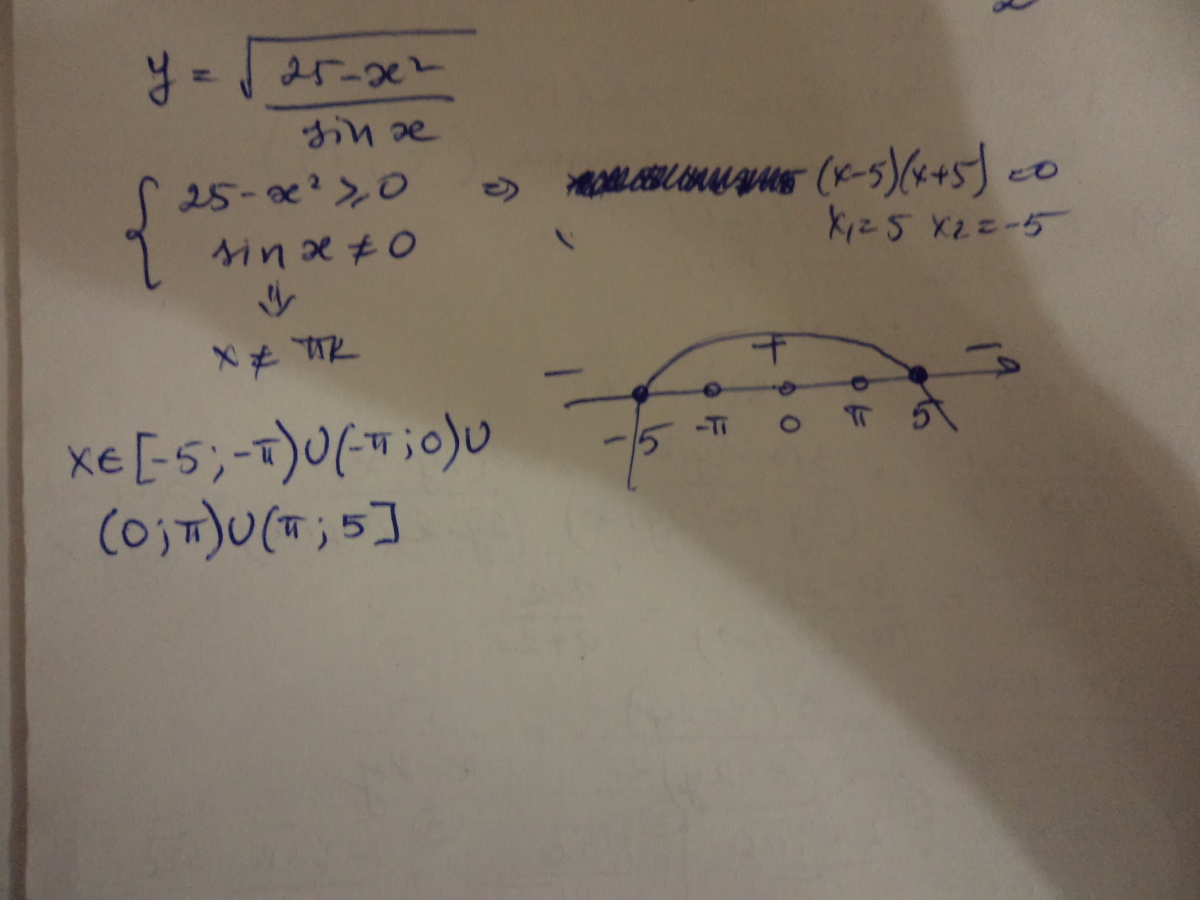 y = √(25-x²)/sin x
{ 25-x² ≥ 0 ⇒ (x-5)(x+5) = 0
sin x ≠ 0 x₁ = 5 x₂ = -5
⇓
x ≠ πk
- + -
-5 -π 0 π 5
x ∈ [-5; -π) ∪ (-π; 0) ∪
(0; π) ∪ (π; 5]